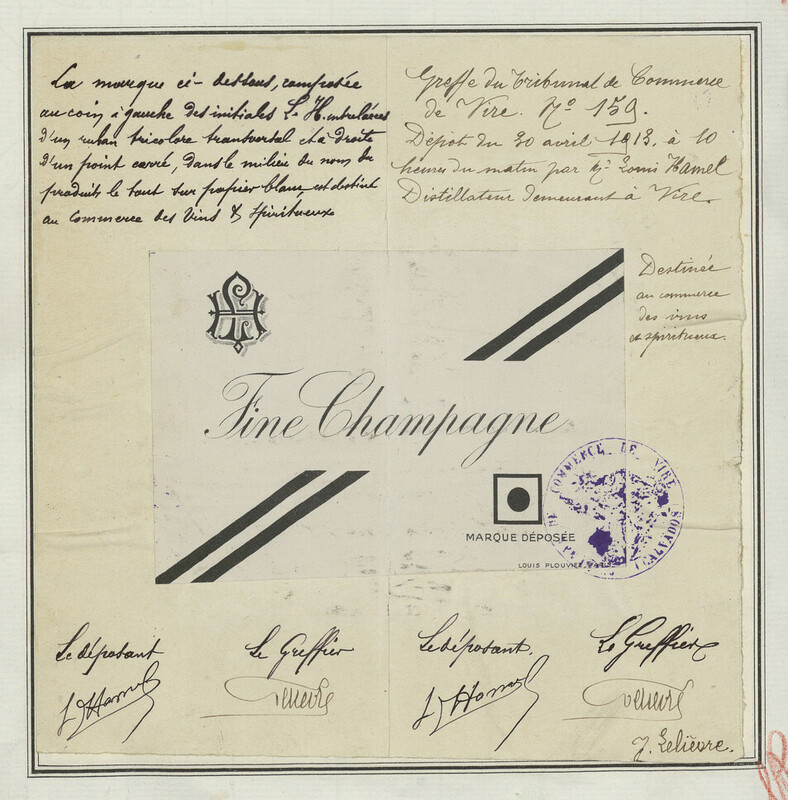 La marque ci-dessous, composée
au coin à gauche des initiales L. H. entrelacées
d'un ruban tricolore transversal et à droite
d'un point carré, dans le milieu du nom du
produits le tout sur papier blanc, est destiné
au commerce des Vins & Spiritueux
Greffe du Tribunal de Commerce
de Vire. No 159.
Dépot du 30 avril 1913. à 10
heures du matin par Mr Louis Hamel
Distillateur demeurant à Vire.
Destinée
au commerce
des vins
et spiritueux.
LH
Fine Champagne
MARQUE DÉPOSÉE
LOUIS PLOUVIER
COMMERCE DE VIRE
(CALVADOS
Le déposant
Le Greffier
L Hamel
Le déposant.
Le Greffier
L Hamel
J. Lelièvre.